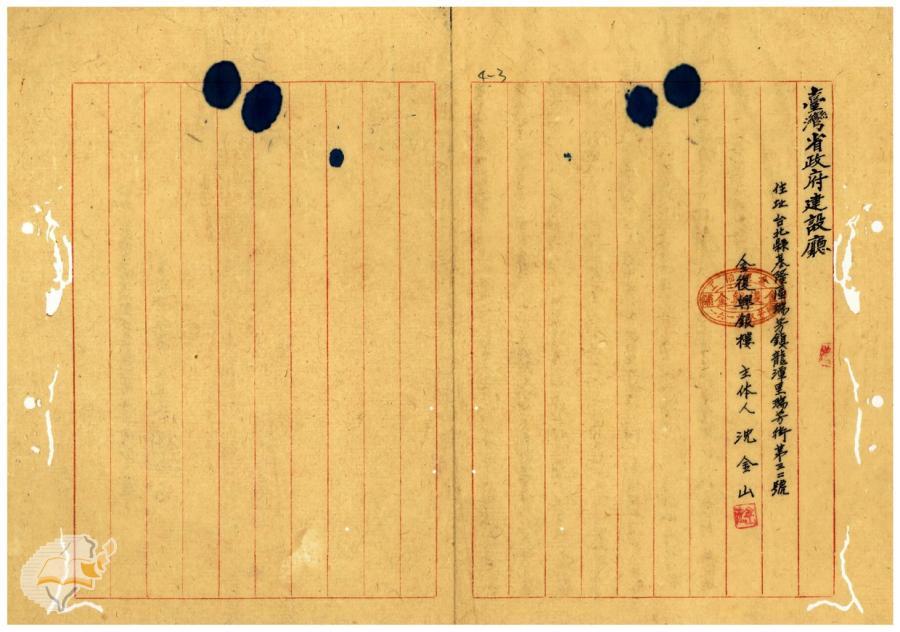 臺灣省政府建設廳
住址 台北縣基隆區瑞芳鎮龍潭里瑞芳街第三二號
金復興銀樓 主体人 沈金山
4-3